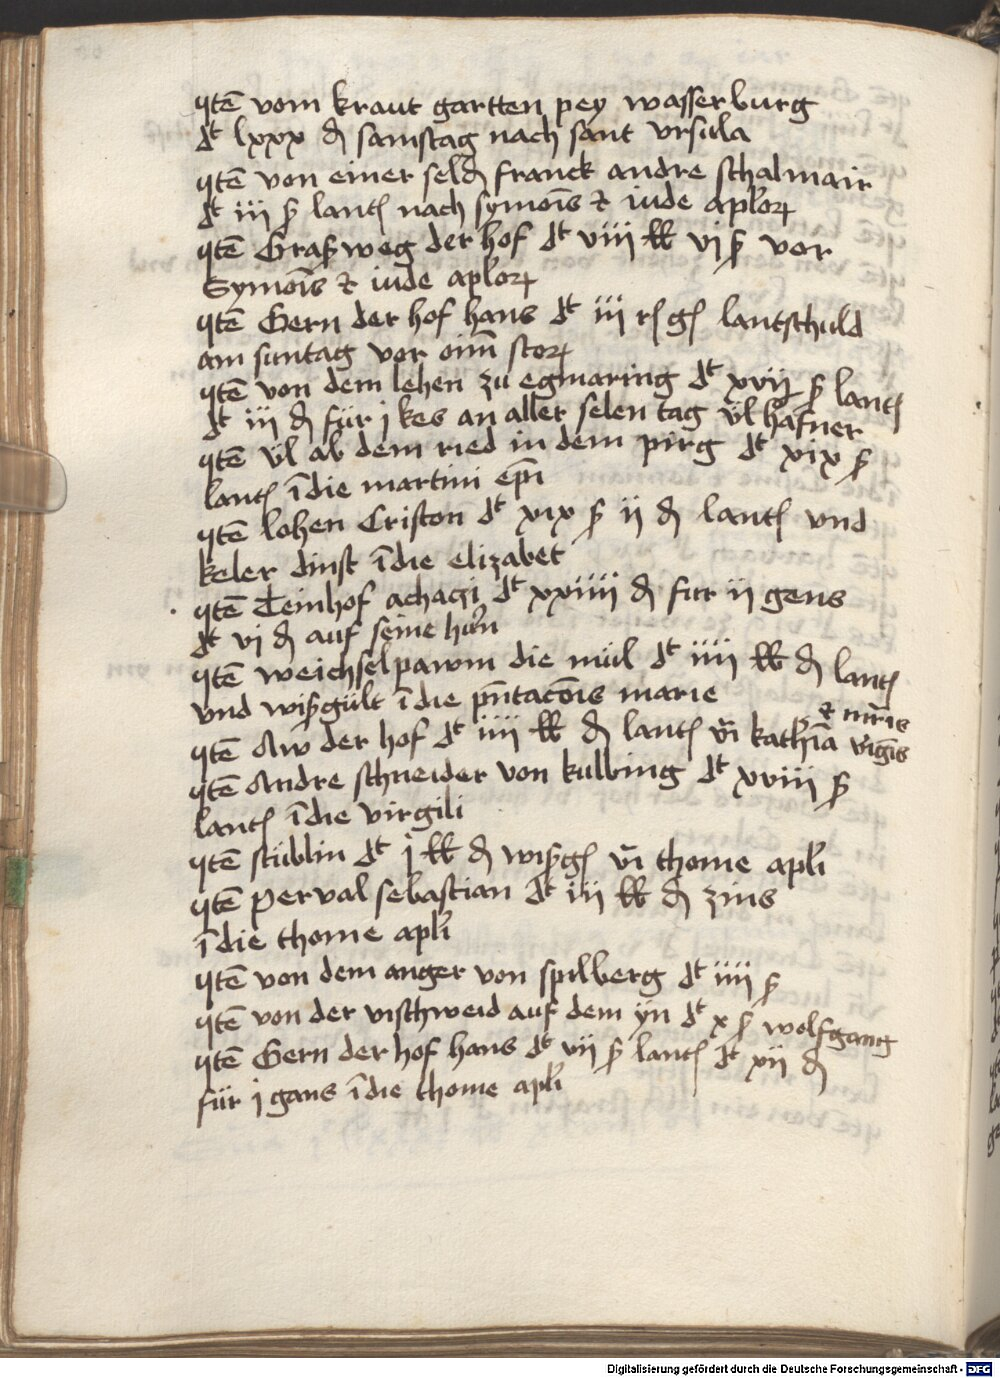 Itē vom kraut gartten pey wasserburg
dt lxxx ₰ samstag nach sant vrsula
Itē von einer seld franck andre schalmair
dt iij ß lantẜ nach symōis et iude aplor
Itē Graßweg der hof dt viii ℔ vj ß vor
Symōis et iude aplor
Itē Gern der hof hans dt iii gẜ lantschuld
am suntag vor oim̄ stor
Itē von dem lehen zu egmaring dt xvij ß lantẜ
dt iii ₰ für j kes an aller selen tag vl hafner
Itē vl ab dem ried in dem pirg dt xix ß
lantẜ ī die martini ep̄i
Itē lohen Criston dt xix ß ij ₰ lantẜ vnd
keler dinst ī die elizabet
Itē Teinhof achaci dt xxiiii ₰ fur ij gens
dt vi ₰ auf seine hūn
Itē weichselpawm die mül dt iiii ℔ ₰ lantẜ
vnd wißgült ī die pn̄tacōis marie
Itē Aw der hof dt iiii ℔ ₰ lantẜ vī kathīa v̄gīs et mr̄is
Itē Andre schneider von kulbing dt xviii ß
lantẜ ī die virgili
Itē stüblin dt j ℔ ₰ wißgẜ vī thome apli
Itē perval sebastian dt iij ℔ ₰ zins
ī die thome apli
Itē von dem anger von spilberg dt iiii ß
Itē von der vischweid auf dem yn dt x ß wolfgang
Itē Gern der hof hans dt vij ß lantẜ dt xij ₰
für j gans ī die thome apli
Digitalisierung gefördert durch die Deutsche Forschungsgemeinschaft - DFG